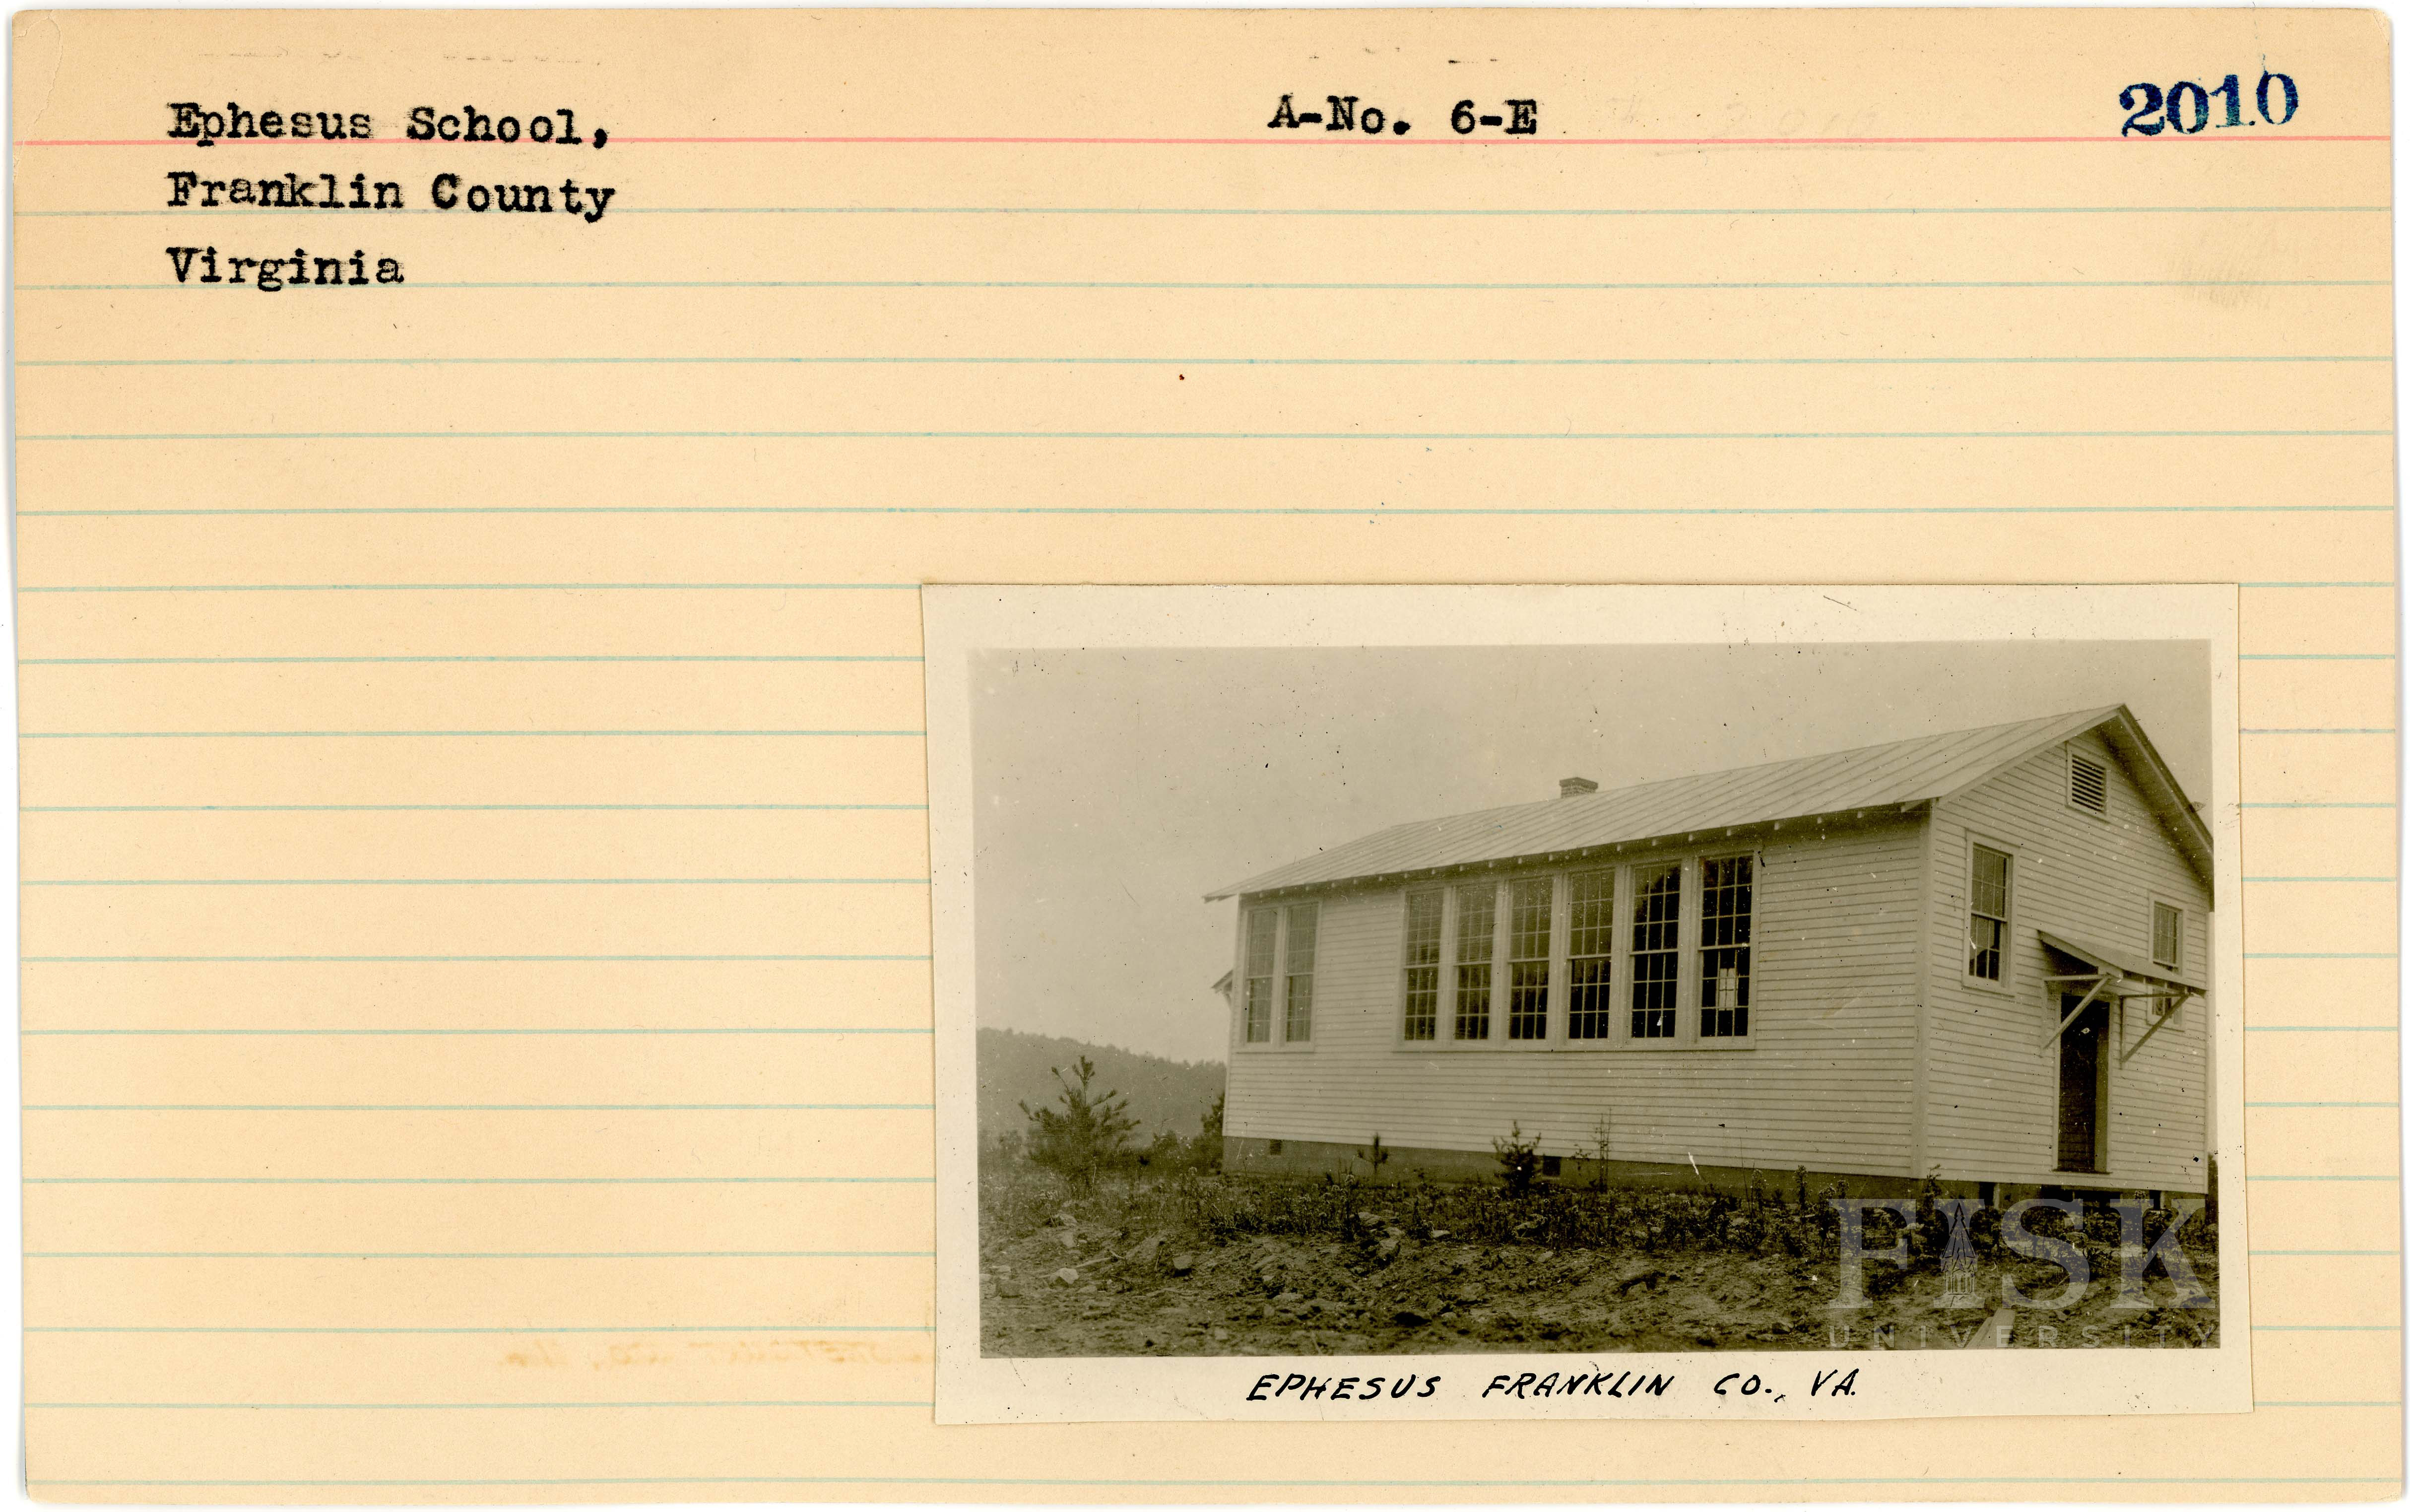 Ephesus School,
A-No. 6-E
2010
Franklin County
Virginia
FISK
UNIVERSITY
EPHESUS FRANKLIN CO., VA.